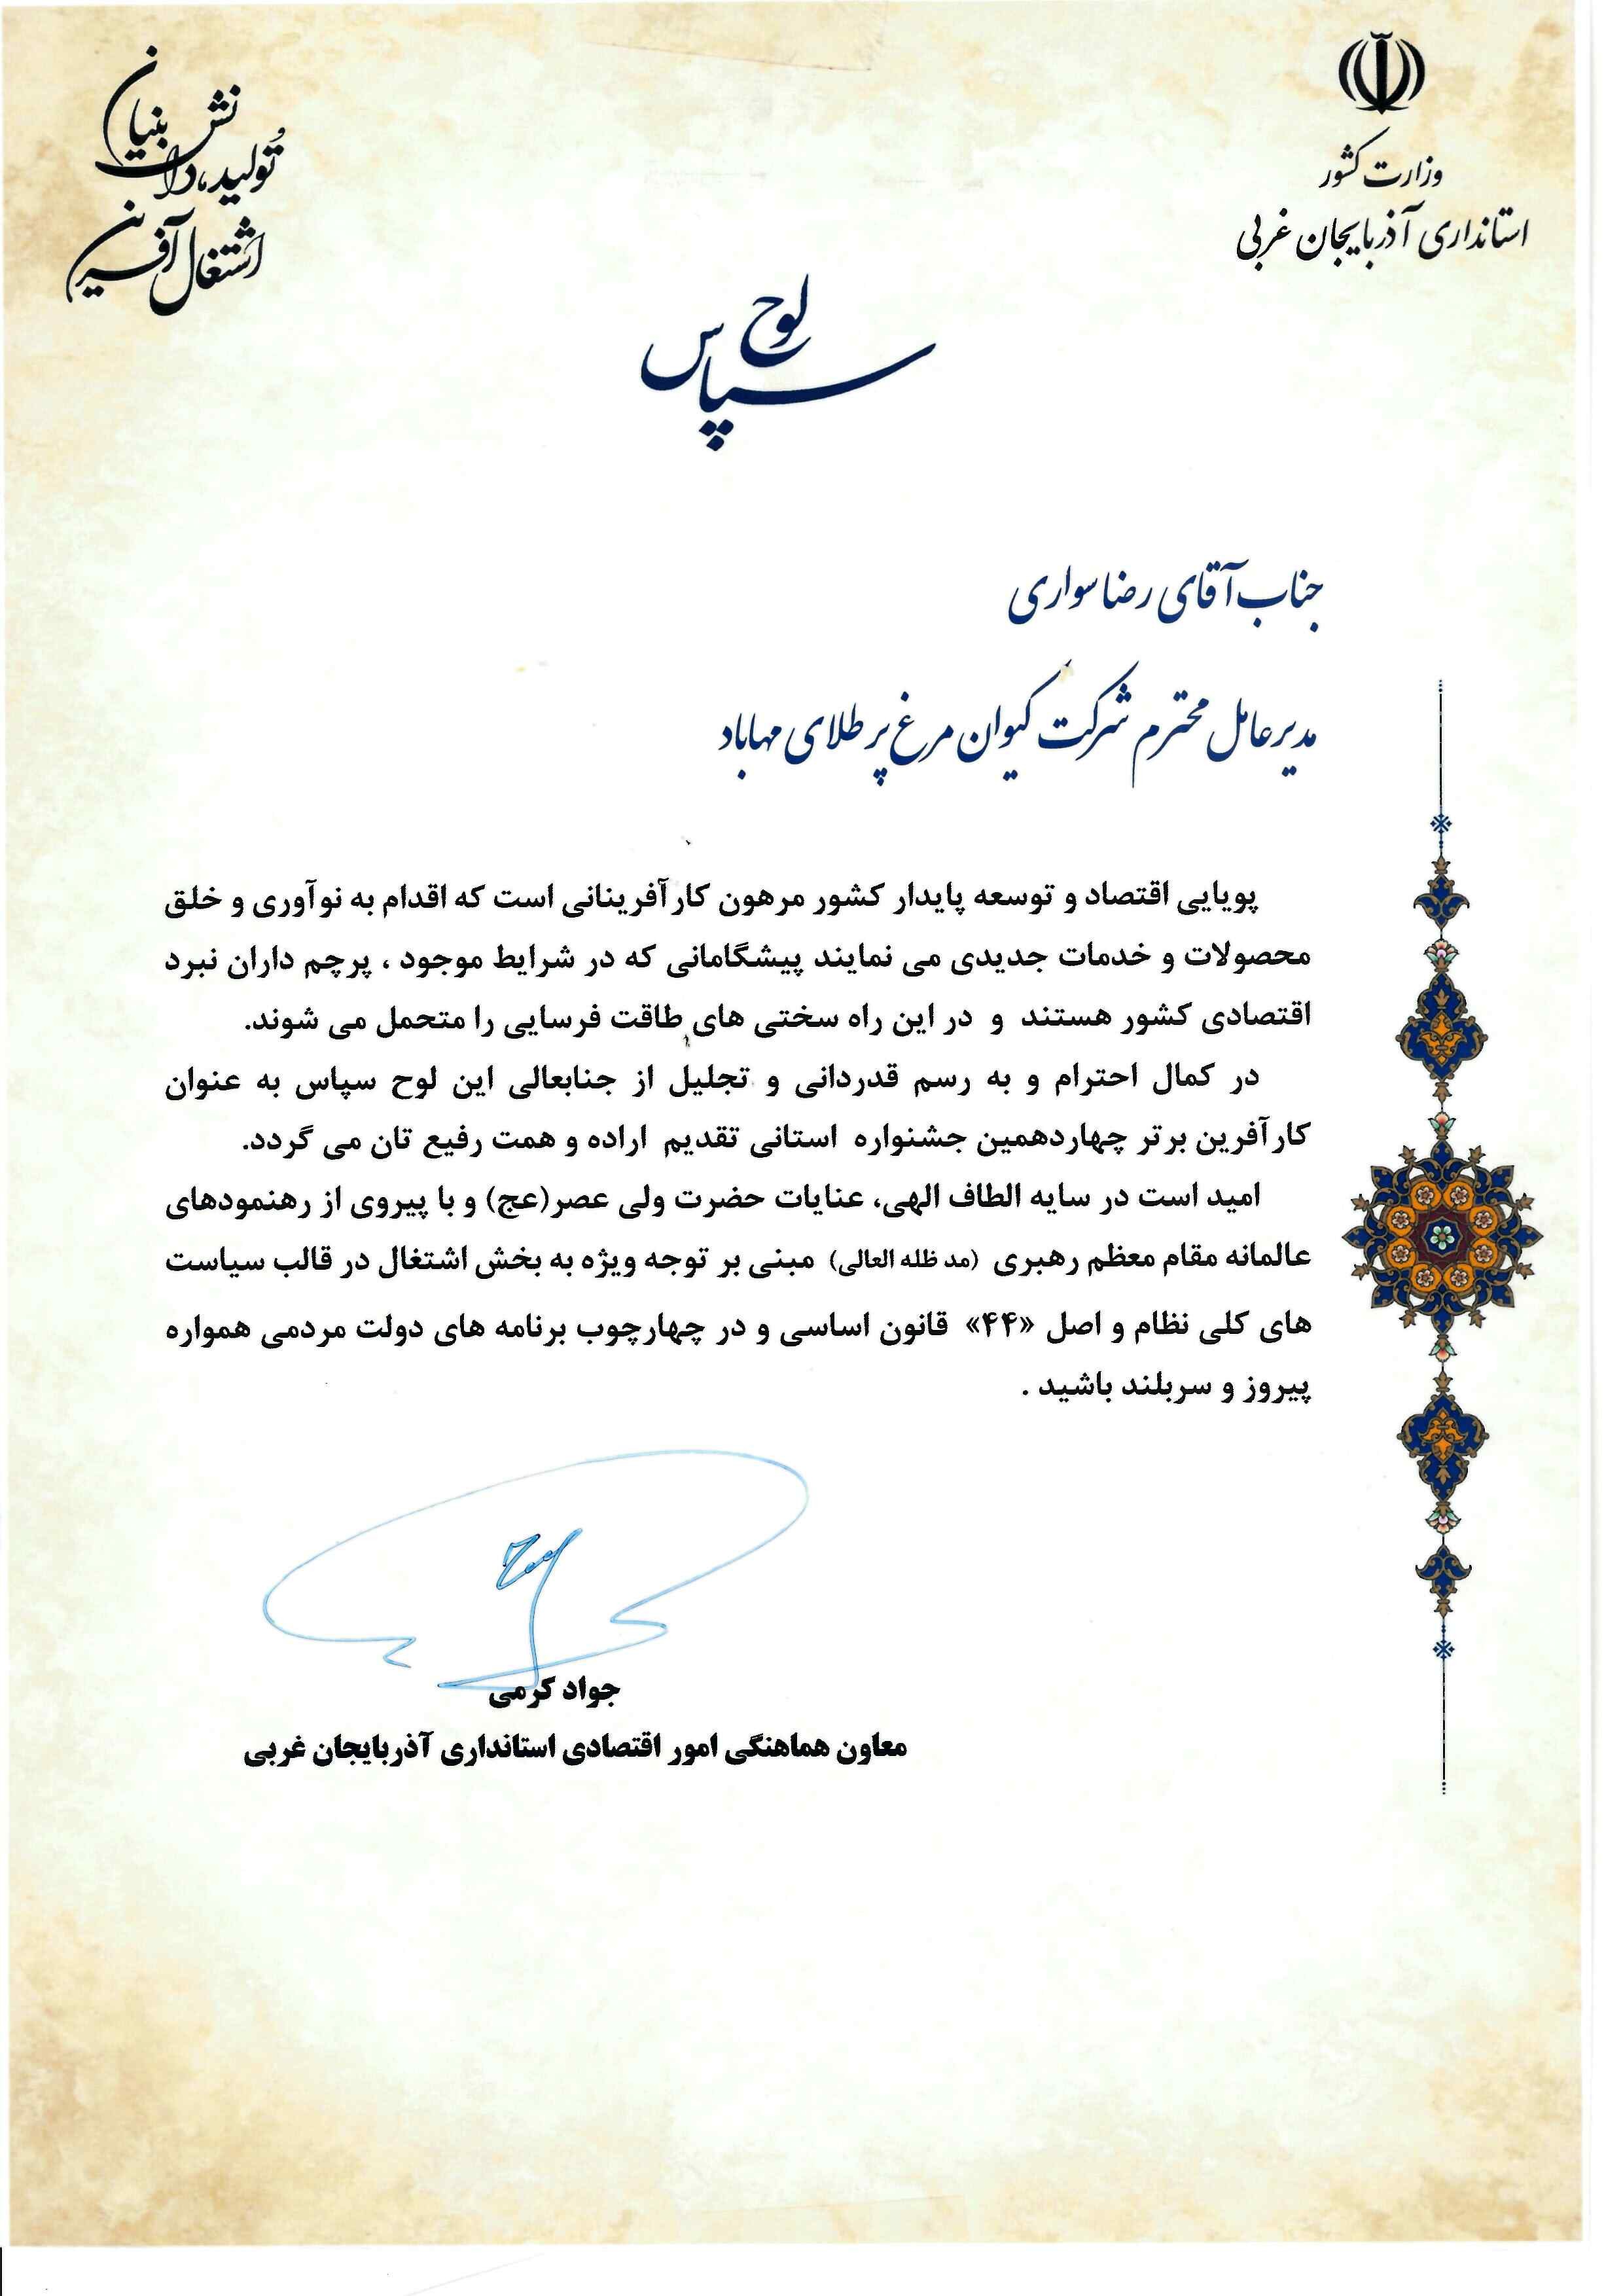 وزارت کشور
استانداری آذربایجان غربی
تولید، دانش بنیان
اشتغال آفرین
لوح سپاس
جناب آقای رضا سواری
مدیرعامل محترم شرکت کیوان مرغ پر طلای مهاباد
پویایی اقتصاد و توسعه پایدار کشور مرهون کارآفرینانی است که اقدام به نوآوری و خلق
محصولات و خدمات جدیدی می نمایند پیشگامانی که در شرایط موجود ، پرچم داران نبرد
اقتصادی کشور هستند و در این راه سختی های طاقت فرسایی را متحمل می شوند.
در کمال احترام و به رسم قدردانی و تجلیل از جنابعالی این لوح سپاس به عنوان
کارآفرین برتر چهاردهمین جشنواره استانی تقدیم اراده و همت رفیع تان می گردد.
امید است در سایه الطاف الهی، عنایات حضرت ولی عصر(عج) و با پیروی از رهنمودهای
عالمانه مقام معظم رهبری (مد ظله العالی) مبنی بر توجه ویژه به بخش اشتغال در قالب سیاست
های کلی نظام و اصل «۴۴» قانون اساسی و در چهارچوب برنامه های دولت مردمی همواره
پیروز و سربلند باشید .
جواد کرمی
معاون هماهنگی امور اقتصادی استانداری آذربایجان غربی